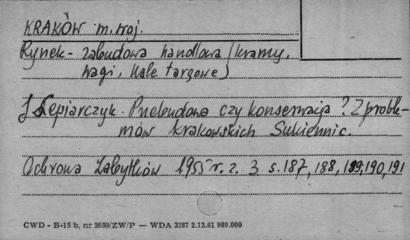 KRAKÓW m. woj.
Rynek - zabudowa handlowa (kramy,
wagi, hale targowe)
J Lepiarczyk. Przebudowa czy konserwacja? Z proble-
mów krakowskich Sukiennic.
Ochrona Zabytków 1955 r. z. 3 s. 187, 188, 189, 190, 191
CWD - B-15 b, nr 2659/ZW/P — WDA 3287 2.12.61 989.000